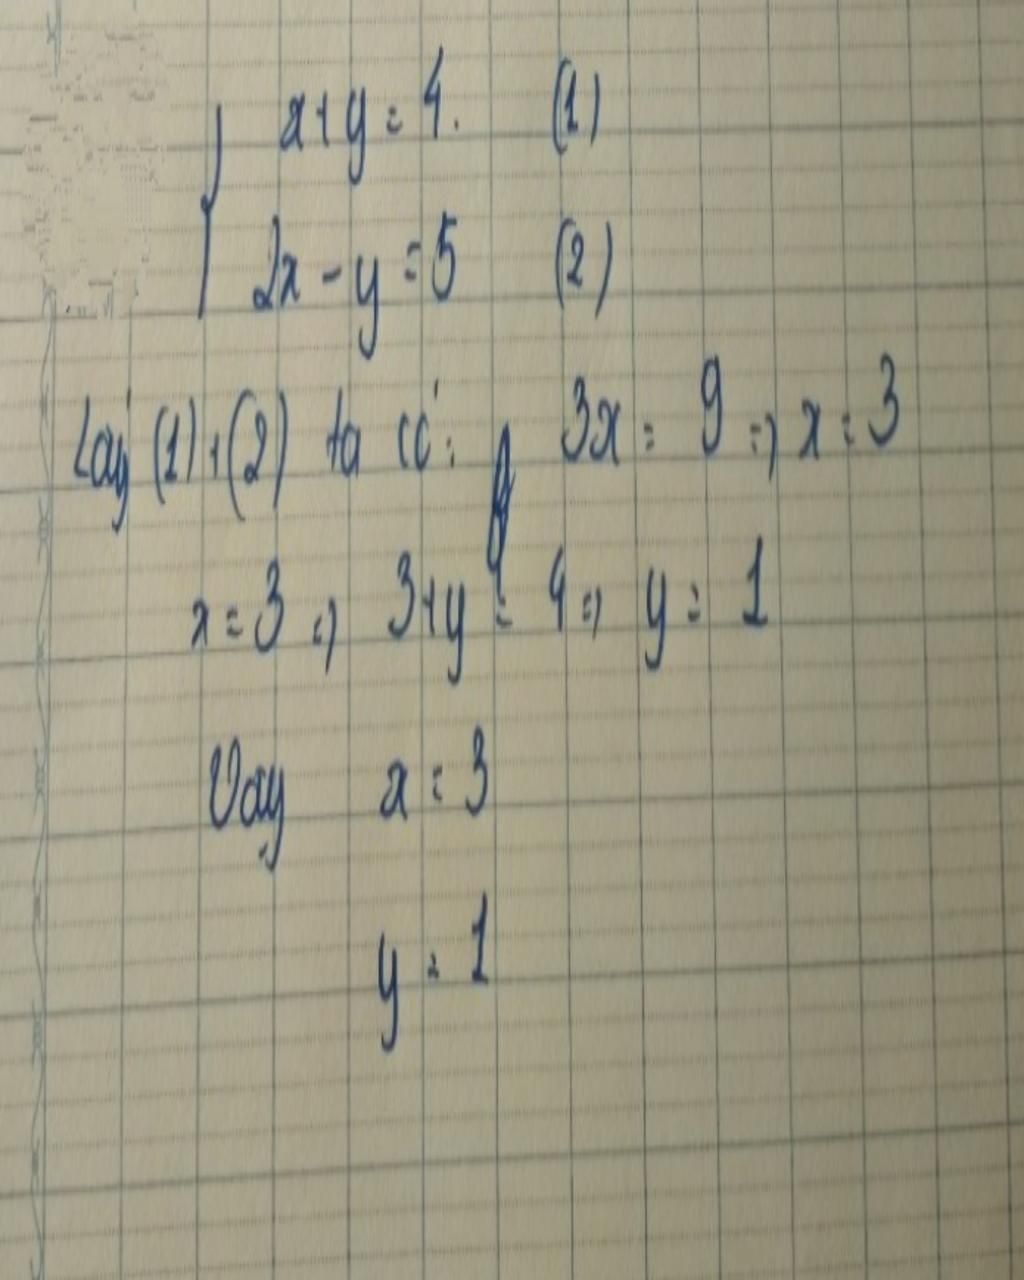 x+y=4. (1)
2x-y=5 (2)
Lấy (1)+(2) ta có: 3x=9 => x=3
x=3 => 3+y=4 => y=1
Vậy x=3
y=1